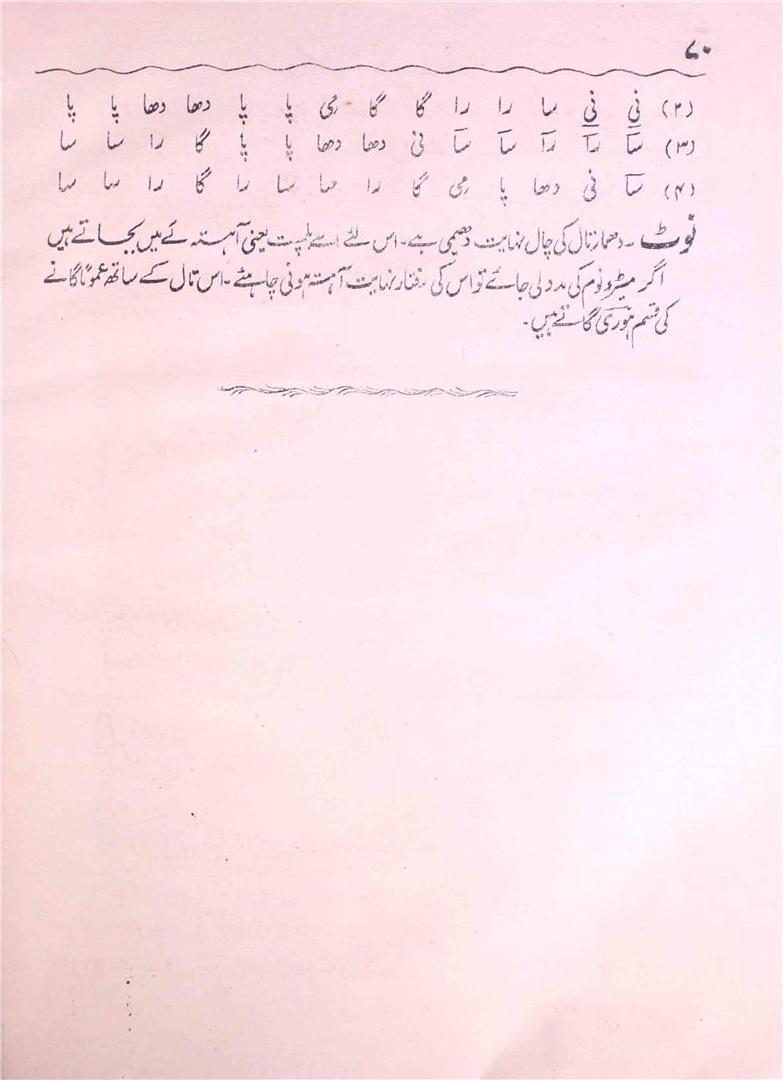 ۷۰
(۲) نی نی سا را را گا گا می پا پا دھا دھا پا پا
(۳) سآ رآ رآ سآ سآ نی دھا دھا پا پا گا را سا سا
(۴) سآ نی دھا پا می گا را سا سا را گا را سا سا
نوٹ ۔ دھمار تال کی چال نہایت دھیمی ہے۔ اس لئے اسے بلمپت یعنی آہستہ کے میں بجاتے ہیں
اگر میٹرونوم کی مدد لی جائے تو اس کی رفتار نہایت آہستہ ہونی چاہئے۔ اس تال کے ساتھ عموماً گانے
کی قسم ہوری گاتے ہیں۔